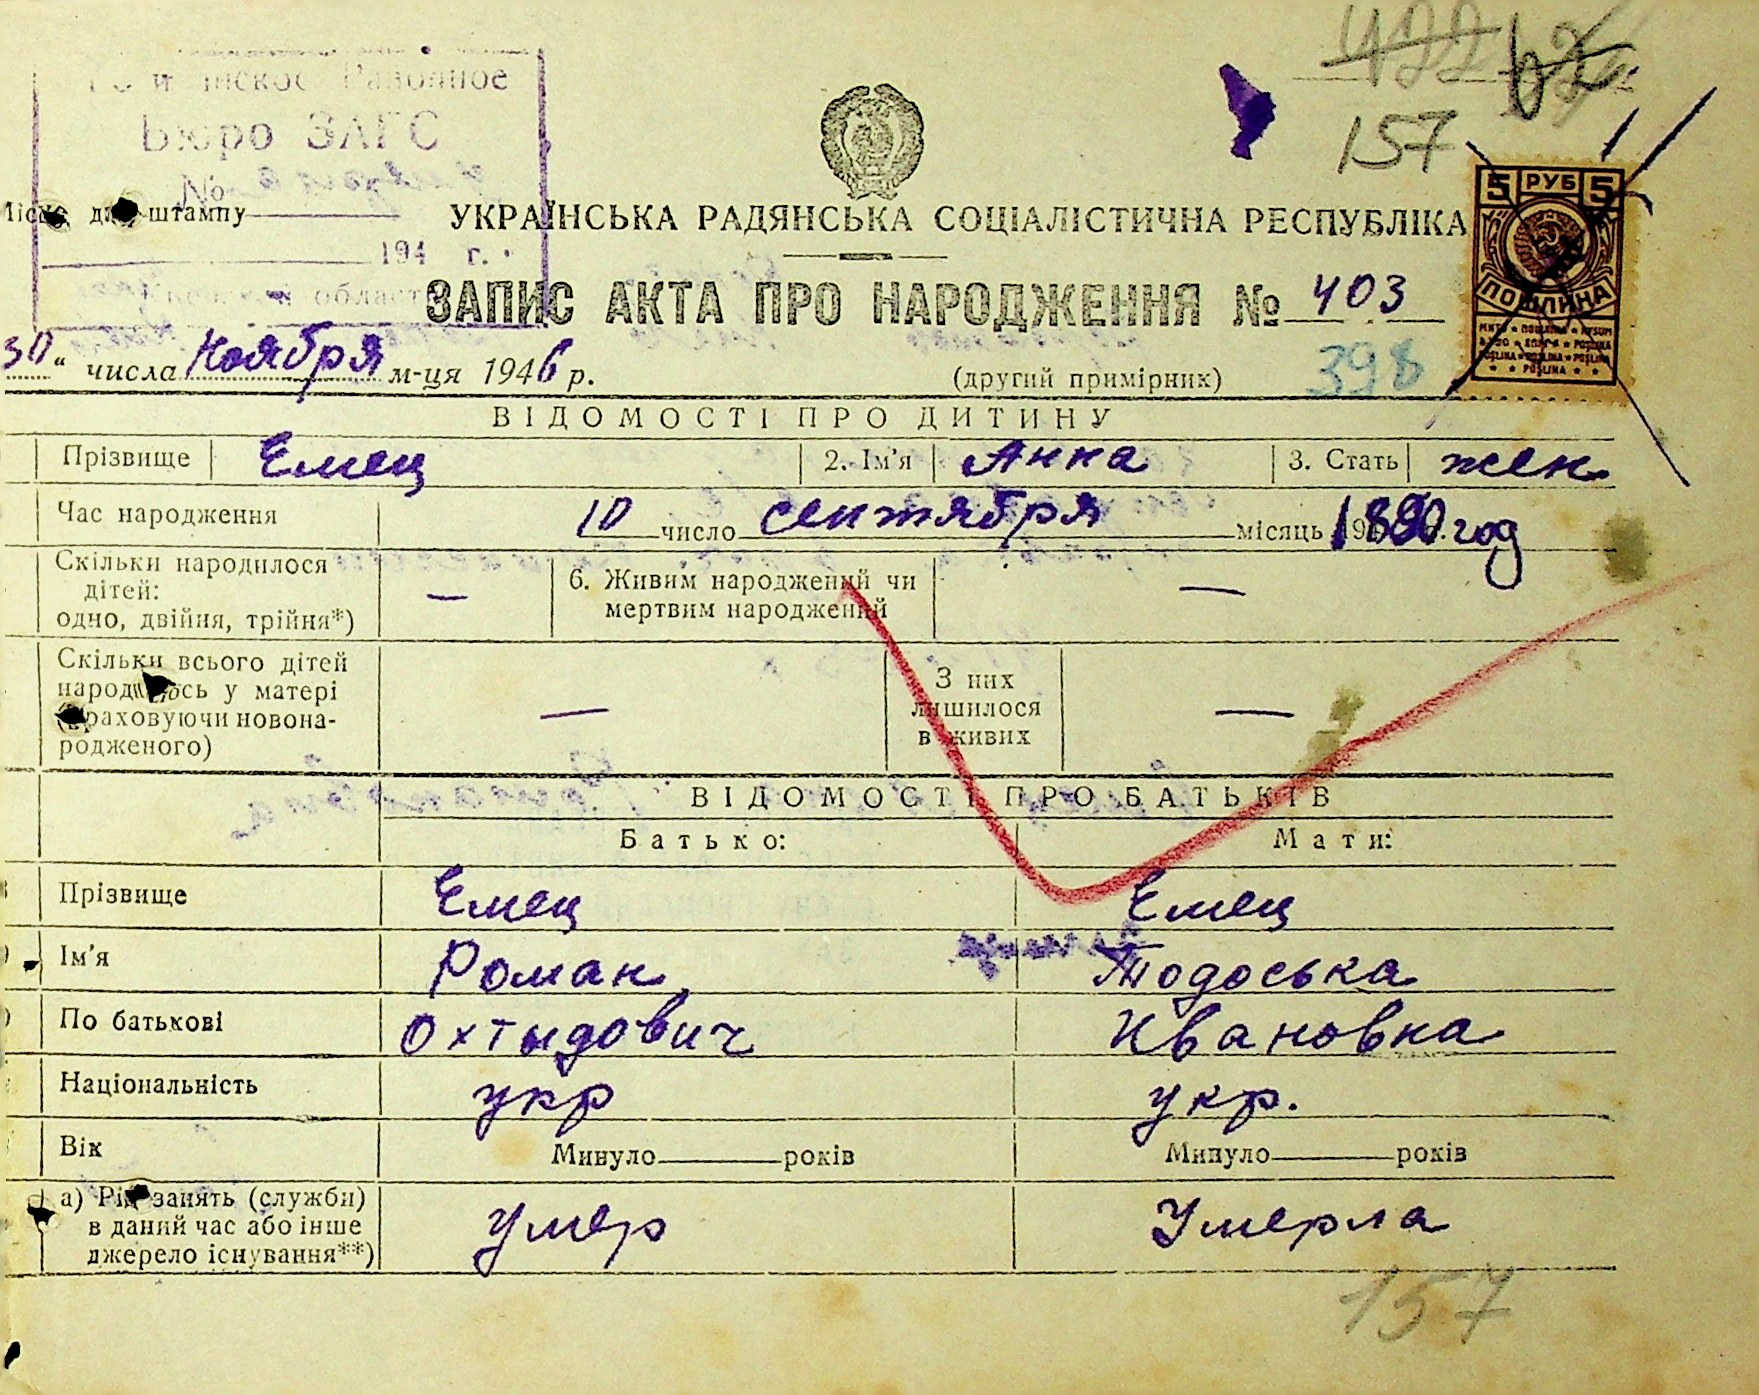 422
157
Районное
Бюро ЗАГС
№
Місце для штампу
194 г.
област
УКРАЇНСЬКА РАДЯНСЬКА СОЦІАЛІСТИЧНА РЕСПУБЛІКА
5 РУБ 5
ПОШЛИНА
ЗАПИС АКТА ПРО НАРОДЖЕННЯ № 403
30 " числа Ноября м-ця 1946 р.
(другий примірник) 398
ВІДОМОСТІ ПРО ДИТИНУ
Прізвище Емец 2. Ім'я Анна 3. Стать жен
Час народження 10 число сентября місяць 1890 год
Скільки народилося дітей: одно, двійня, трійня*) — 6. Живим народжений чи мертвим народжений —
Скільки всього дітей народилось у матері (враховуючи новонародженого) — З них лишилося в живих —
ВІДОМОСТІ ПРО БАТЬКІВ
Батько: Мати:
Прізвище Емец Емец
Ім'я Роман Тодоська
По батькові Охтыдович Ивановна
Національність укр укр.
Вік Минуло років Минуло років
а) Рід занять (служби) в даний час або інше джерело існування**) умер Умерла
157